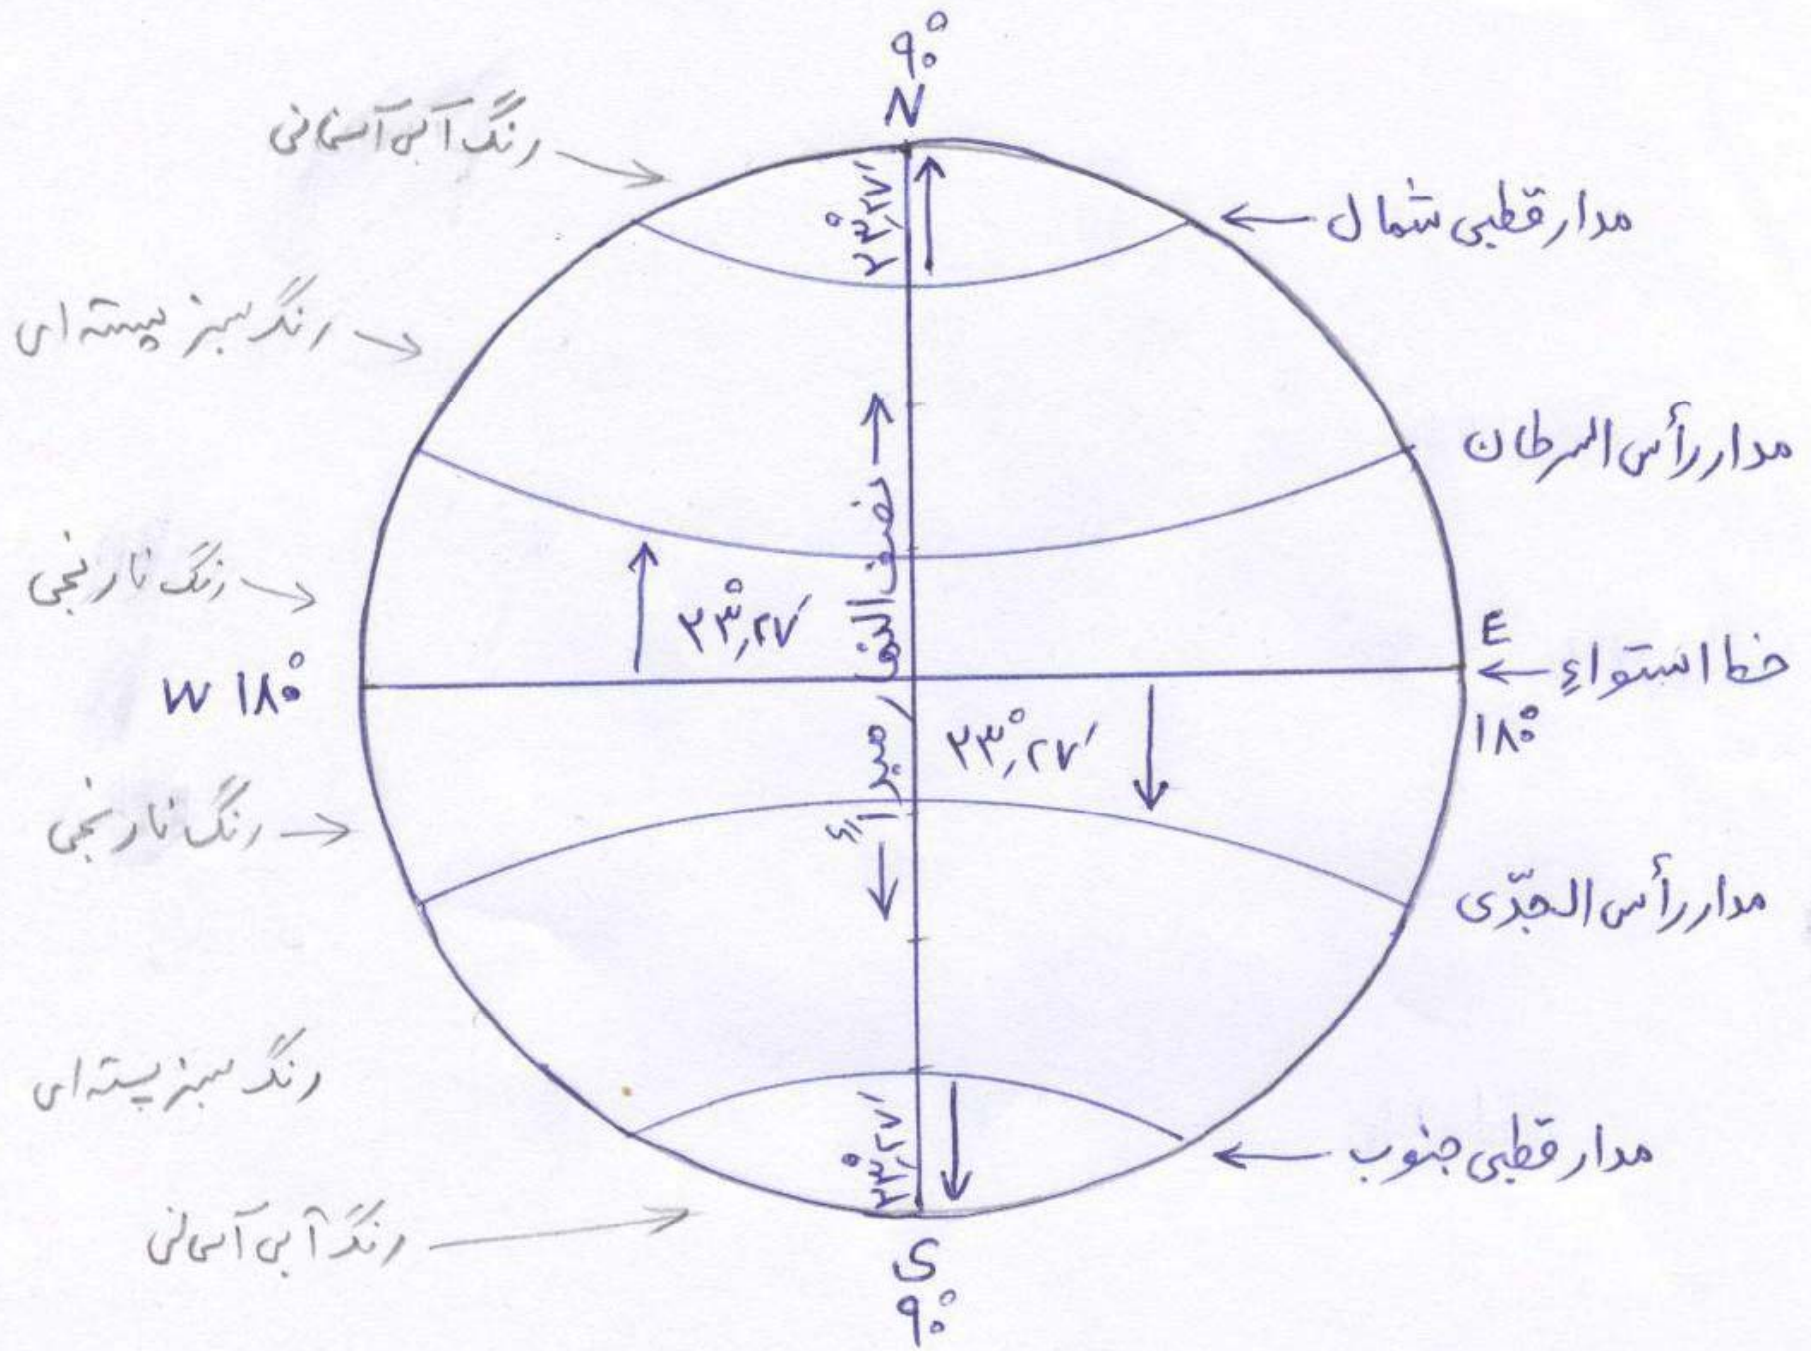 ۹۰°
N
رنگ آبی آسمانی
۲۳°,۲۷′
مدار قطبی شمال
رنگ سبز پسته ای
مدار رأس السرطان
نصف النهار مبدأء
رنگ نارنجی
۲۳°,۲۷′
E
W ۱۸۰°
خط استواء
۱۸۰°
۲۳°,۲۷′
رنگ نارنجی
مدار رأس الجدّی
رنگ سبز پسته ای
۲۳°,۲۷′
مدار قطبی جنوب
رنگ آبی آسمانی
S
۹۰°